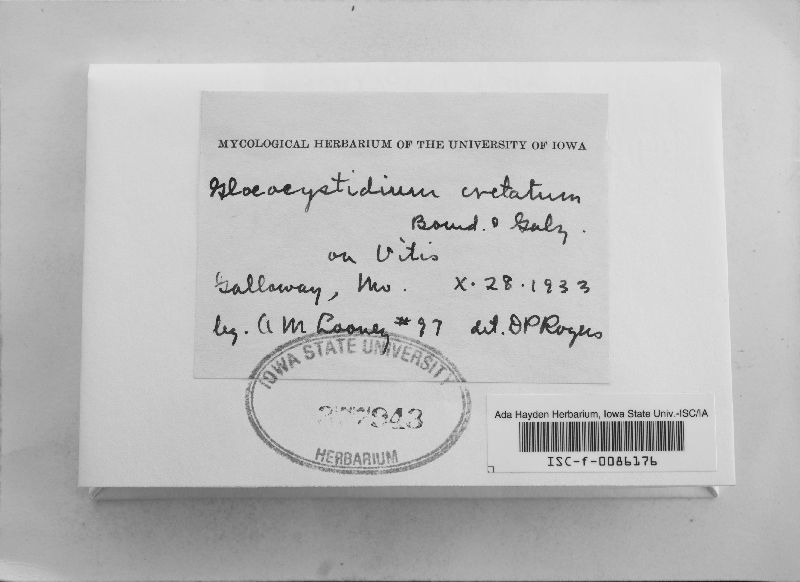 MYCOLOGICAL HERBARIUM OF THE UNIVERSITY OF IOWA
Gloeocystidium cretatum
Bourd. & Galz.
on Vitis
Galloway, Mo. X·28·1933
leg. A M Looney #97 det. DPRogers
IOWA STATE UNIVERSITY
HERBARIUM
Ada Hayden Herbarium, Iowa State Univ.-ISC/IA
ISC-f-0086176